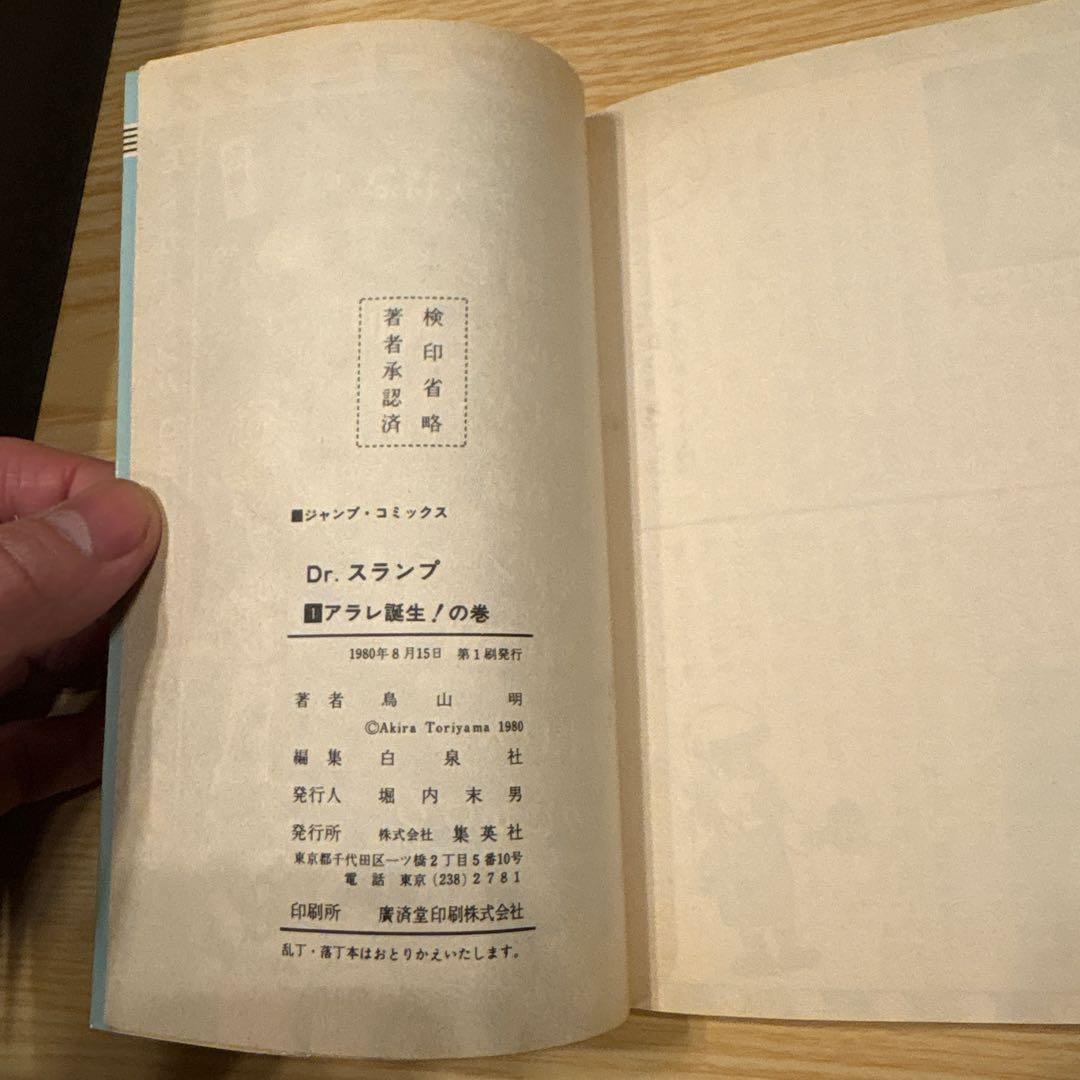 検印省略
著者承認済
■ジャンプ・コミックス
Dr.スランプ
1アラレ誕生!の巻
1980年8月15日 第1刷発行
著者 鳥山明
©Akira Toriyama 1980
編集 白泉社
発行人 堀内末男
発行所 株式会社 集英社
東京都千代田区一ツ橋2丁目5番10号
電話 東京(238)2781
印刷所 廣済堂印刷株式会社
乱丁・落丁本はおとりかえいたします。